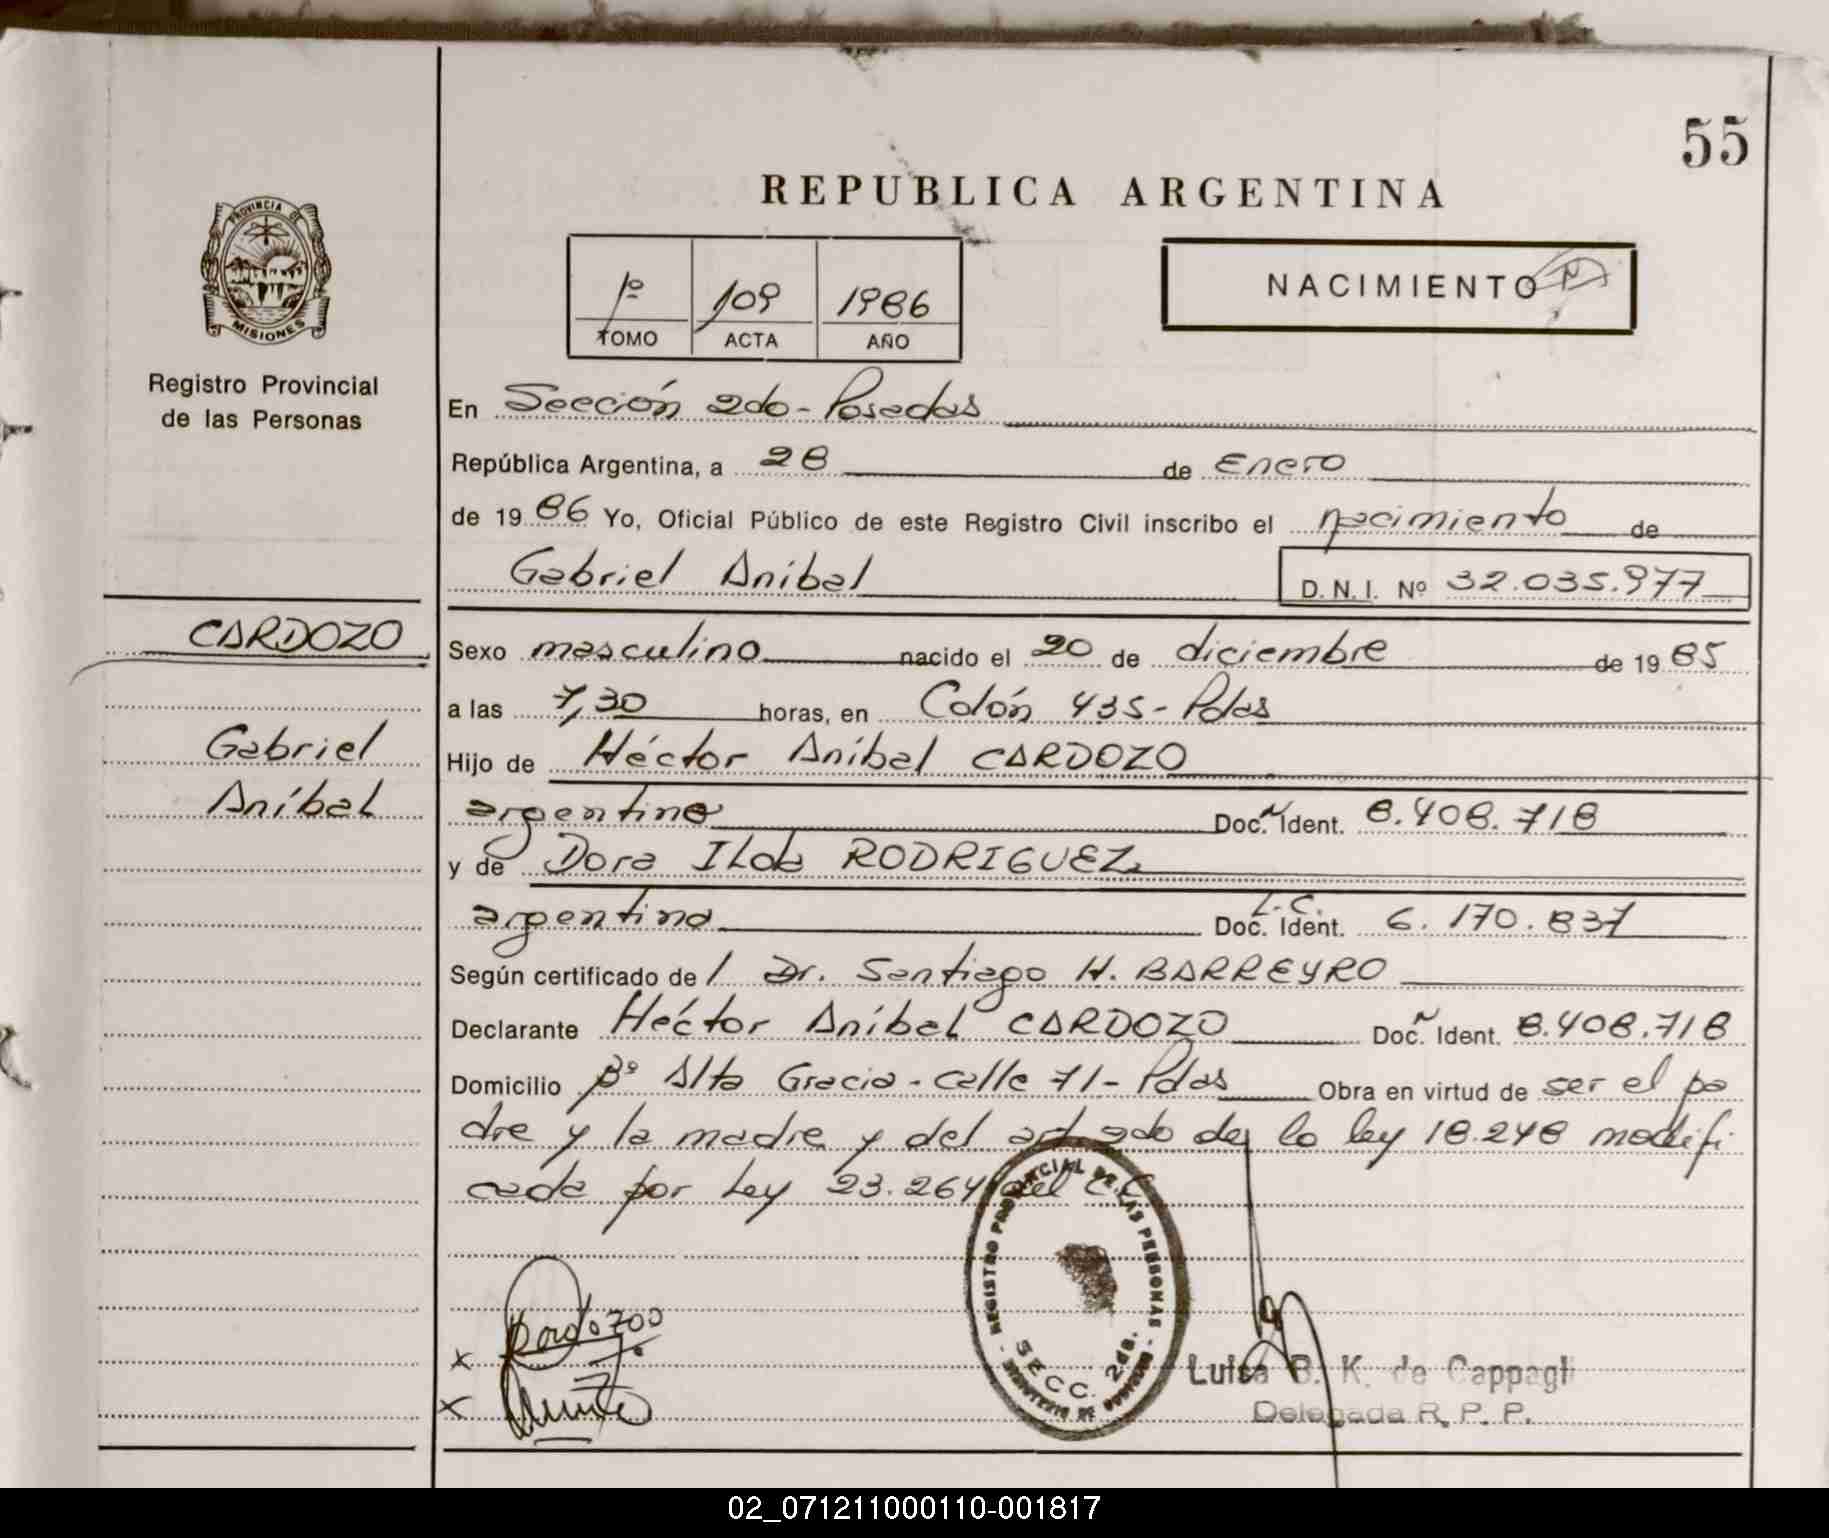 55
REPUBLICA ARGENTINA
PROVINCIA DE MISIONES
1º 109 1986
TOMO ACTA AÑO
NACIMIENTO
Registro Provincial
de las Personas
En Sección 2do - Posadas
República Argentina, a 28 de Enero
de 1986 Yo, Oficial Público de este Registro Civil inscribo el nacimiento de
Gabriel Aníbal D. N. I. Nº 32.035.977
CARDOZO
Gabriel
Aníbal
Sexo masculino nacido el 20 de diciembre de 1985
a las 7,30 horas, en Colón 435 - Pdas
Hijo de Héctor Aníbal CARDOZO
argentino Doc. Ident. 8.408.718
y de Dora Ilda RODRIGUEZ
argentina L.C. Doc. Ident. 6.170.837
Según certificado de / Dr. Santiago H. BARREYRO
Declarante Héctor Aníbal CARDOZO Doc. Ident. 8.408.718
Domicilio Bº Alta Gracia - calle 71 - Pdas Obra en virtud de ser el pa
dre y la madre y del art 2do de lo ley 18.248 modifi
cada por Ley 23.264 del C.C.
REGISTRO PROVINCIAL DE LAS PERSONAS
SECC. 2da.
Luisa B. K. de Cappagli
Delegada R. P. P.
02_071211000110-001817